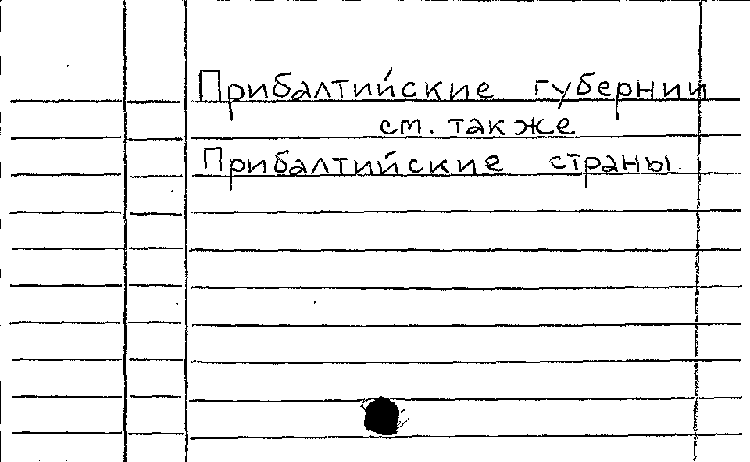 Прибалтийские губернии
см. также
Прибалтийские страны